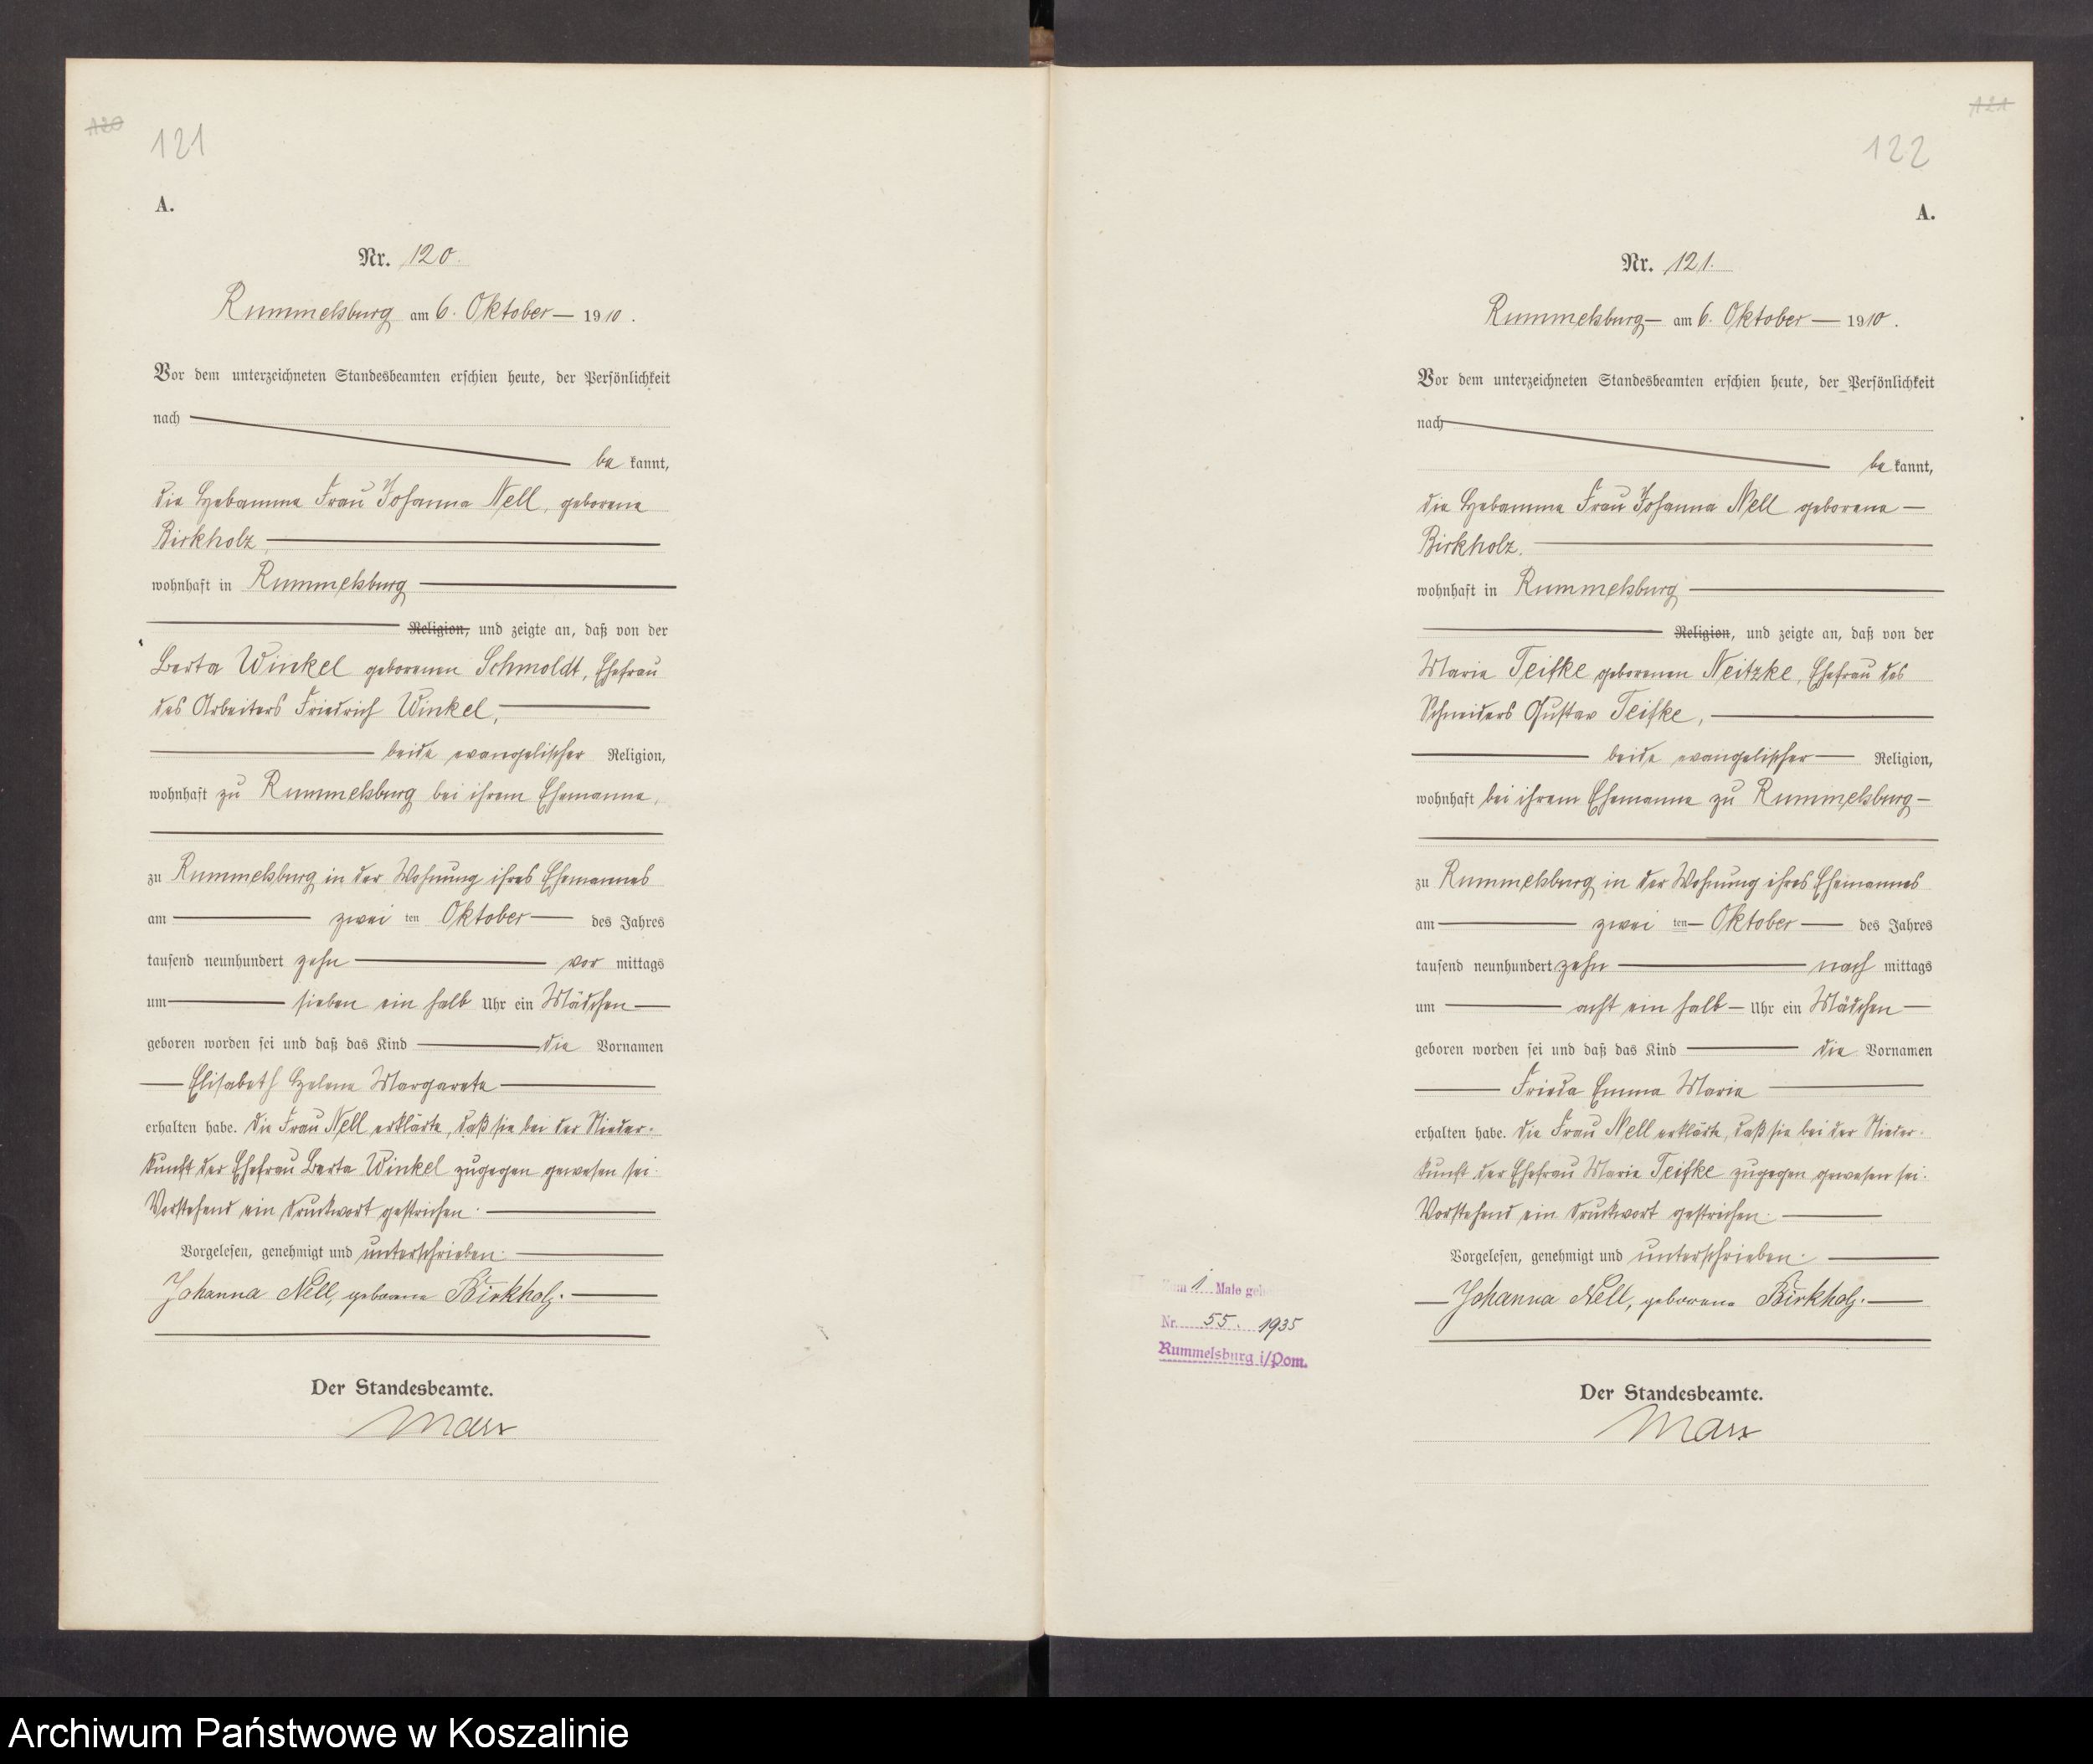 120
121
A.
Nr. 120.
Rummelsburg am 6. Oktober 1910.
Vor dem unterzeichneten Standesbeamten erschien heute, der Persönlichkeit
nach
be kannt,
die Hebamme Frau Johanna Nell, geborene
Birkholz
wohnhaft in Rummelsburg
Religion, und zeigte an, daß von der
Berta Winkel geborenen Schmoldt, Ehefrau
des Arbeiters Friedrich Winkel,
beide evangelischer Religion,
wohnhaft zu Rummelsburg bei ihrem Ehemanne,
zu Rummelsburg in der Wohnung ihres Ehemannes
am zwei ten Oktober des Jahres
tausend neunhundert zehn vor mittags
um sieben ein halb Uhr ein Mädchen
geboren worden sei und daß das Kind die Vornamen
Elisabeth Helene Margarete
erhalten habe. Die Frau Nell erklärte, daß sie bei der Nieder-
kunft der Ehefrau Berta Winkel zugegen gewesen sei.
Vorstehend ein Druckwort gestrichen.
Vorgelesen, genehmigt und unterschrieben.
Johanna Nell, geborene Birkholz.
Der Standesbeamte.
Marx
121
122
A.
Nr. 121.
Rummelsburg am 6. Oktober 1910.
Vor dem unterzeichneten Standesbeamten erschien heute, der Persönlichkeit
nach
be kannt,
die Hebamme Frau Johanna Nell geborene
Birkholz.
wohnhaft in Rummelsburg
Religion, und zeigte an, daß von der
Marie Teifke geborenen Neitzke, Ehefrau des
Schneiders Gustav Teifke,
beide evangelischer Religion,
wohnhaft bei ihrem Ehemanne zu Rummelsburg
zu Rummelsburg in der Wohnung ihres Ehemannes
am zwei ten Oktober des Jahres
tausend neunhundert zehn nach mittags
um acht ein halb Uhr ein Mädchen
geboren worden sei und daß das Kind die Vornamen
Frieda Emma Marie
erhalten habe. Die Frau Nell erklärte, daß sie bei der Nieder-
kunft der Ehefrau Marie Teifke zugegen gewesen sei.
Vorstehend ein Druckwort gestrichen.
Vorgelesen, genehmigt und unterschrieben.
Johanna Nell, geborene Birkholz.
Der Standesbeamte.
Marx
1 Male
Nr. 55. 1935
Rummelsburg i/Pom.
Archiwum Państwowe w Koszalinie